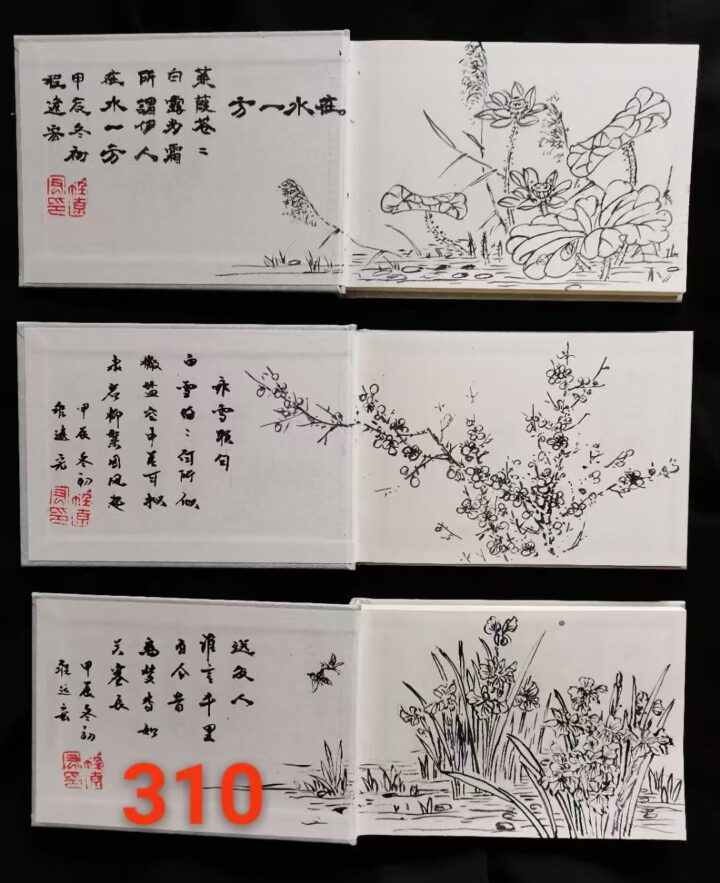 在水一方
蒹葭苍〻
白露为霜
所謂伊人
在水一方
甲辰冬初
程遠
咏雪联句
白雪纷〻何所似
撒盐空中差可拟
未若柳絮因风起
甲辰冬初
程遠
送友人
谁言千里
自今昔
离梦杳如
关塞长
甲辰冬初
程远
310